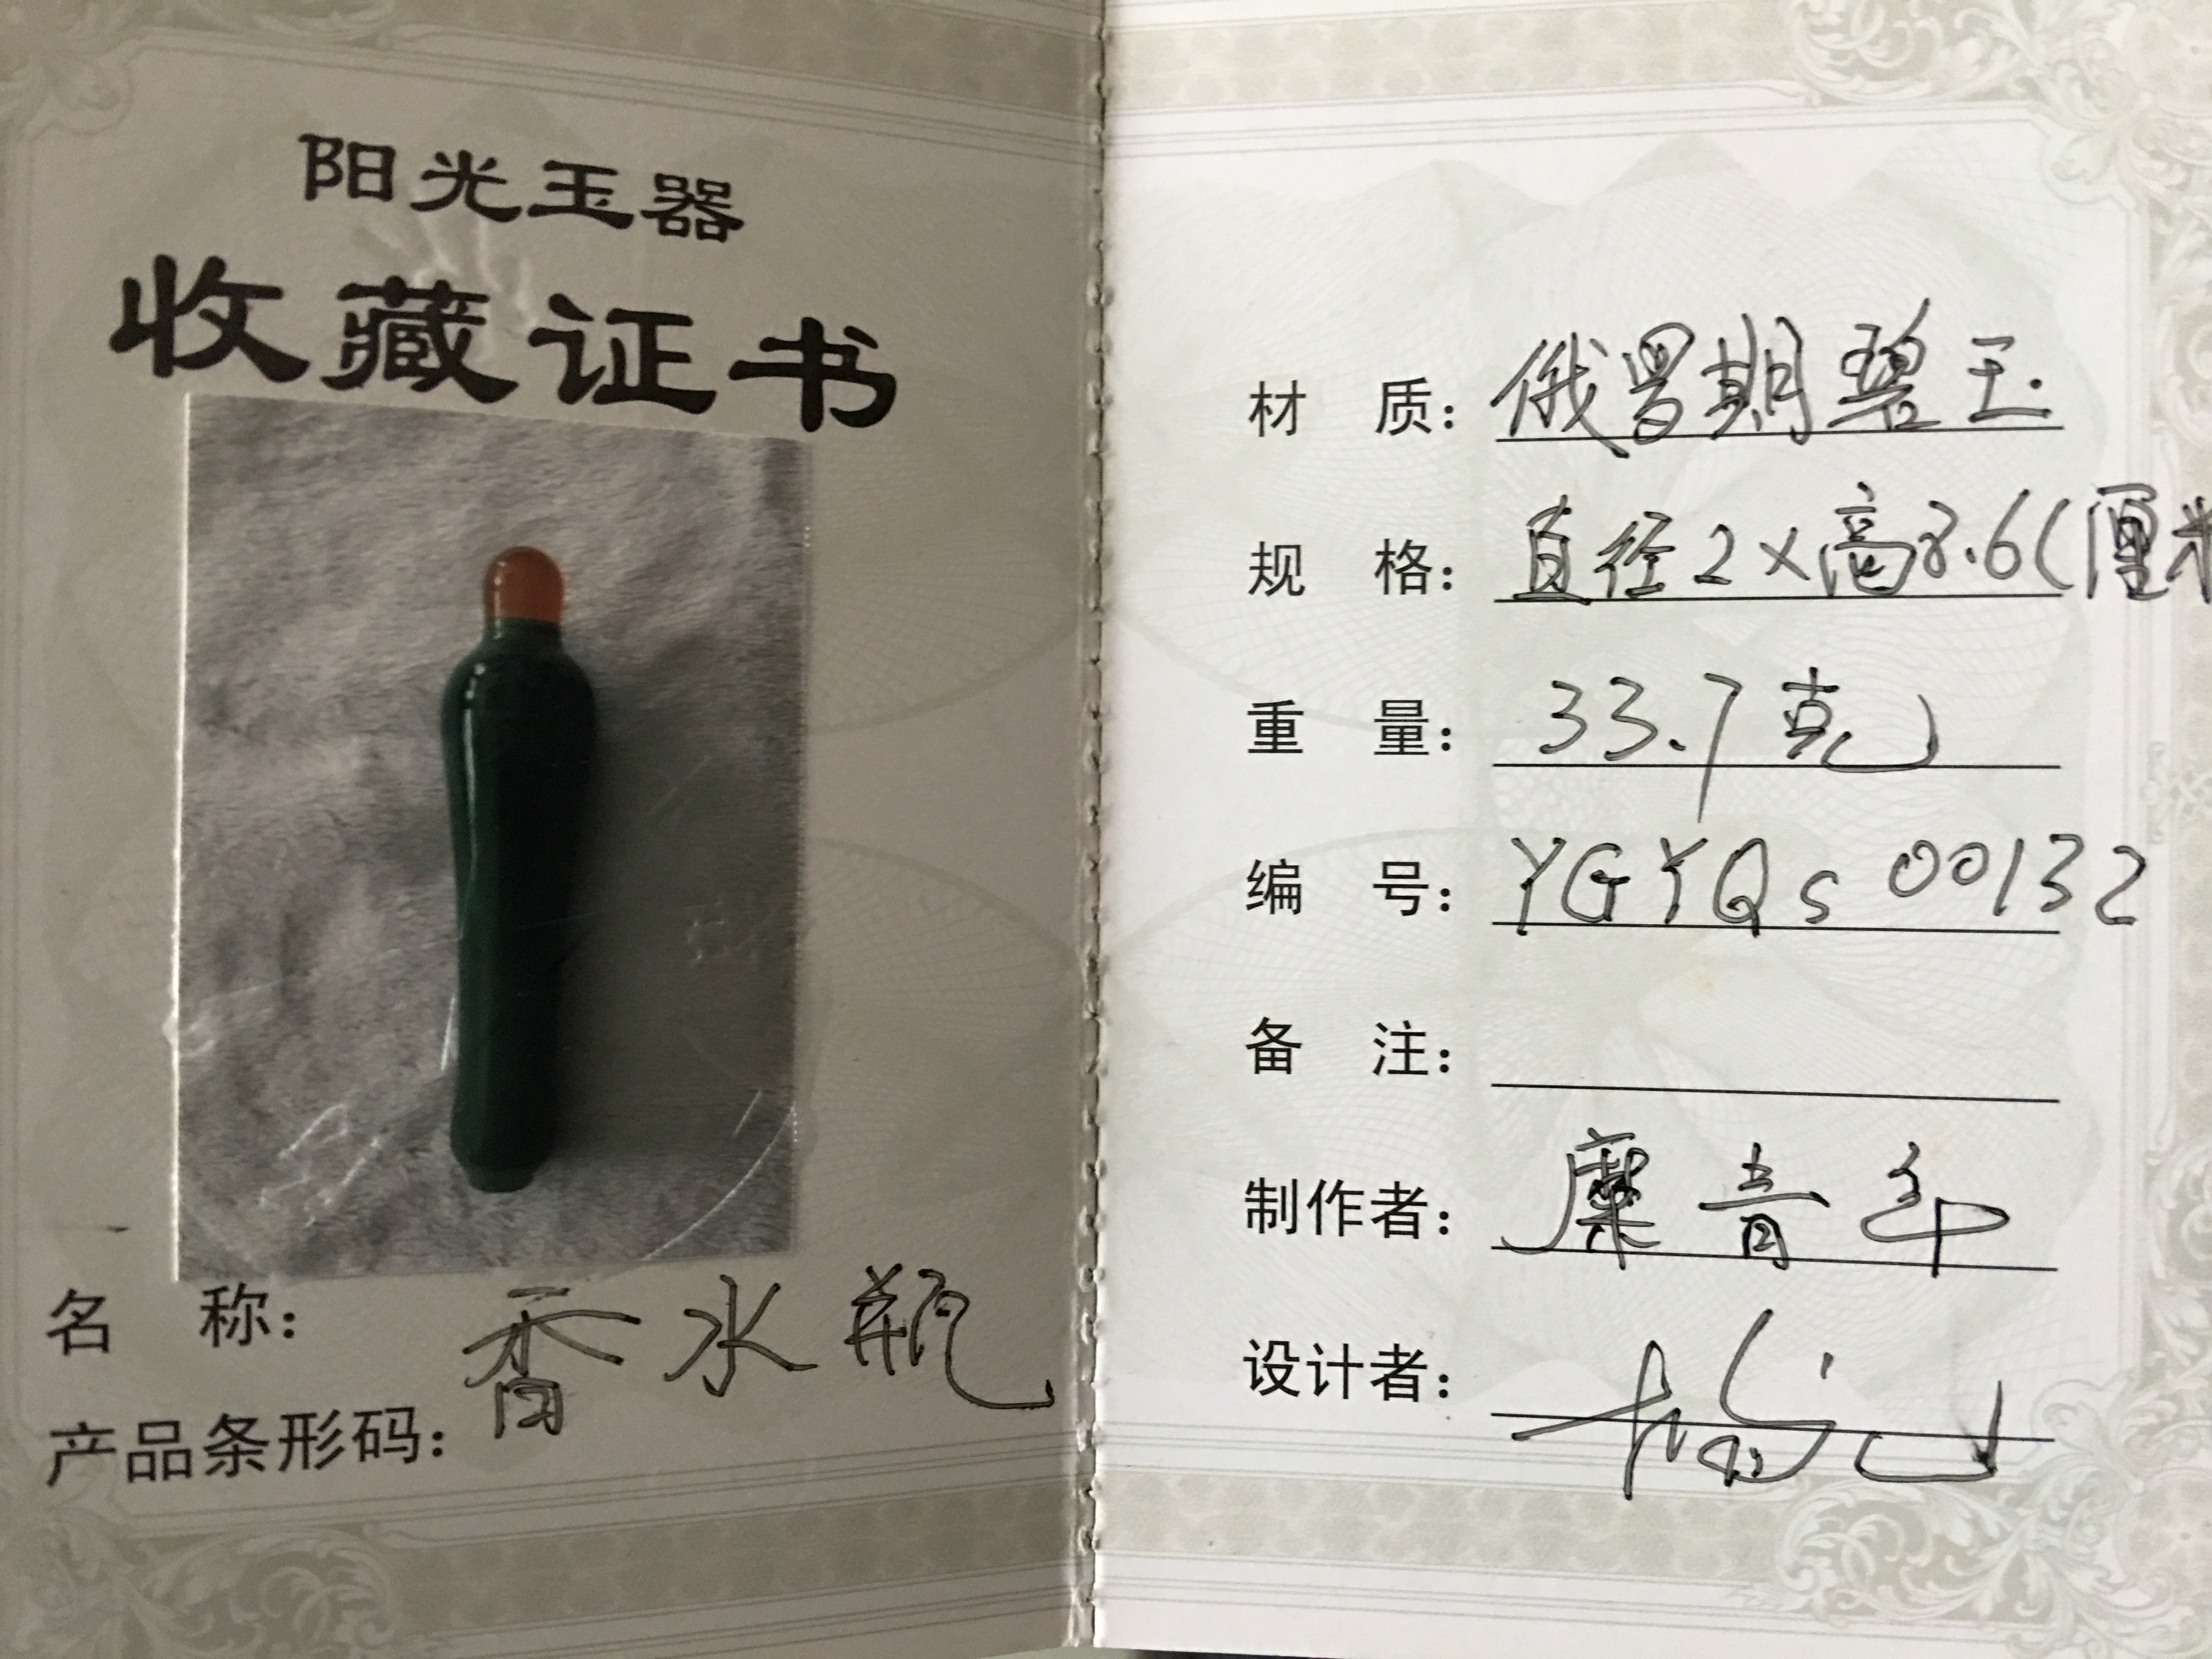 阳光玉器
收藏证书
名 称： 香水瓶
产品条形码：
材 质： 俄罗斯碧玉
规 格： 直径2×高8.6(厘米
重 量： 33.7克
编 号： YGYQs00132
备 注：
制作者： 青年
设计者：